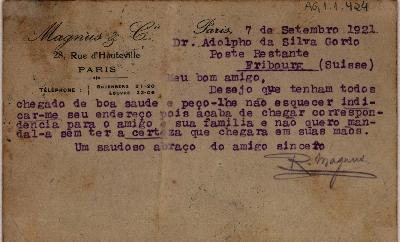 AG.1.1.424
Magnus & Cie
28, Rue d'Hauteville
PARIS
TÉLÉPHONE : GUTENBERG 21-20
LOUVRE 23-08
Paris, 7 de Setembro 1921.
Dr. Adolpho da Silva Gordo
Poste Restante
Fribourg (Suisse)
Meu bom amigo,
Desejo que tenham todos
chegado de boa saude e peço-lhe não esquecer indi-
car-me seu endereço pois acaba de chegar correspon-
dencia para o amigo e sua familia e não quero man-
dal-a sem ter a certeza que chegara em suas mãos.
Um saudoso abraço do amigo sincero
R. Magnus